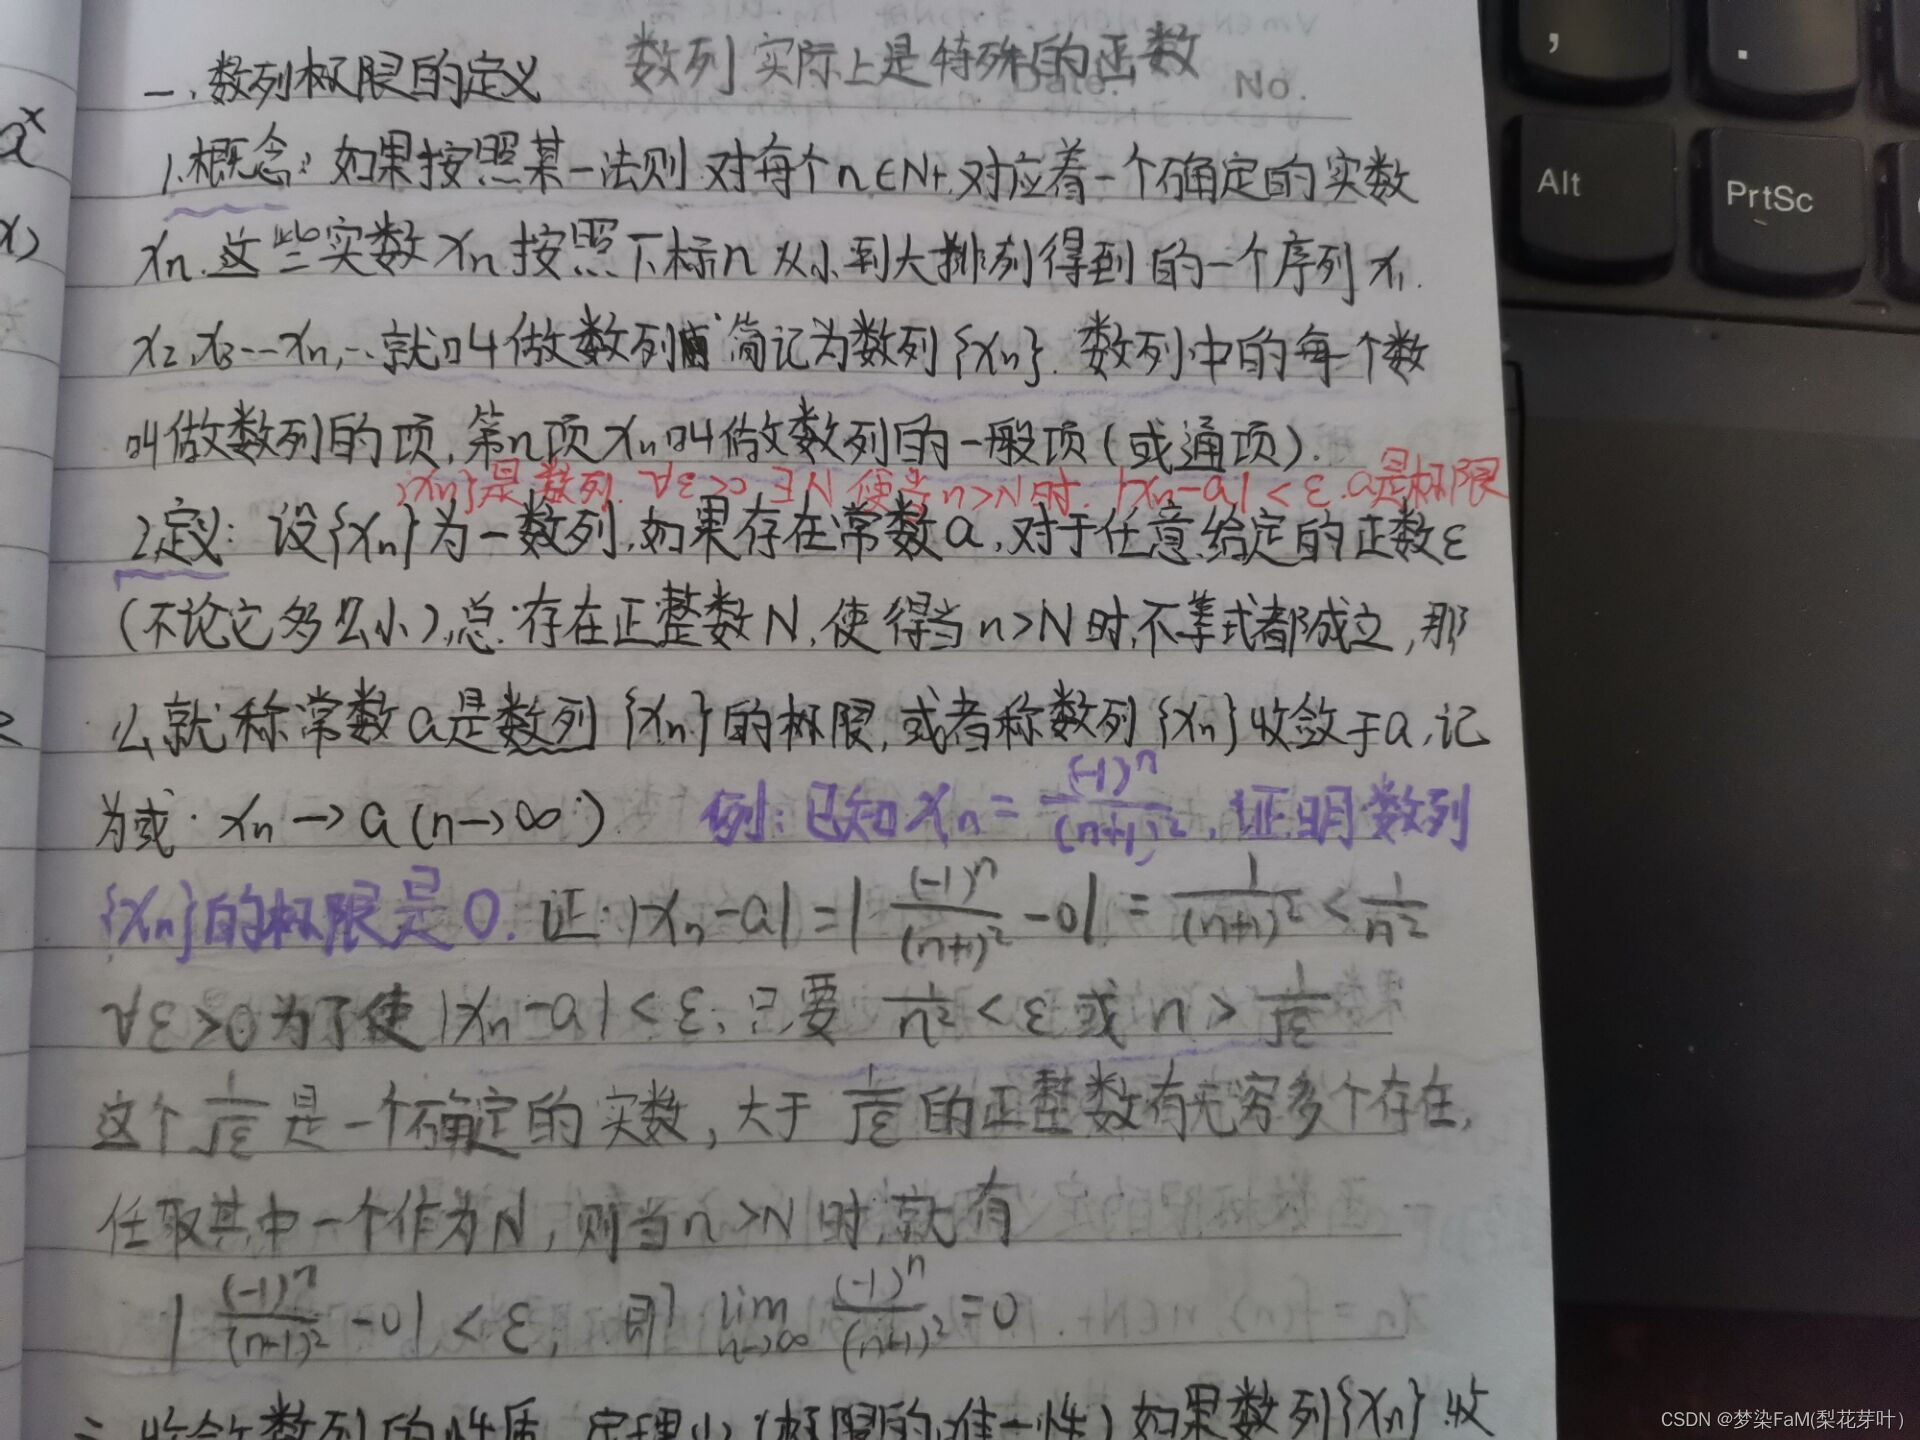 数列实际上是特殊的函数
一、数列极限的定义
No.
1.概念：如果按照某一法则.对每个n∈N+.对应着一个确定的实数
xn.这些实数xn按照下标n从小到大排列得到的一个序列x1.
x2,x3---xn,…就叫做数列 简记为数列{xn}.数列中的每个数
叫做数列的项,第n项xn叫做数列的一般项(或通项).
{xn}是数列.∀ε>0 ∃N 使当n>N时.|xn-a|<ε.a是极限
2.定义：设{xn}为一数列,如果存在常数a,对于任意给定的正数ε
(不论它多么小),总存在正整数N,使得当n>N时,不等式都成立,那
么就称常数a是数列{xn}的极限,或者称数列{xn}收敛于a,记
为或.xn→a(n→∞) 例：已知xn=(-1)^n/(n+1)^2,证明数列
{xn}的极限是0. 证：|xn-a|=|(-1)^n/(n+1)^2-0|=1/(n+1)^2<1/n^2
∀ε>0为了使|xn-a|<ε,只要1/n^2<ε或n>1/√ε
这个1/√ε是一个确定的实数,大于1/√ε的正整数有无穷多个存在,
任取其中一个作为N,则当n>N时,就有
|(-1)^n/(n+1)^2-0|<ε,即lim n→∞ (-1)^n/(n+1)^2=0
二.收敛数列的性质 定理1(极限的唯一性)如果数列{xn}收
a^x
x)
,
.
Alt
PrtSc
CSDN @梦染FaM(梨花芽叶)